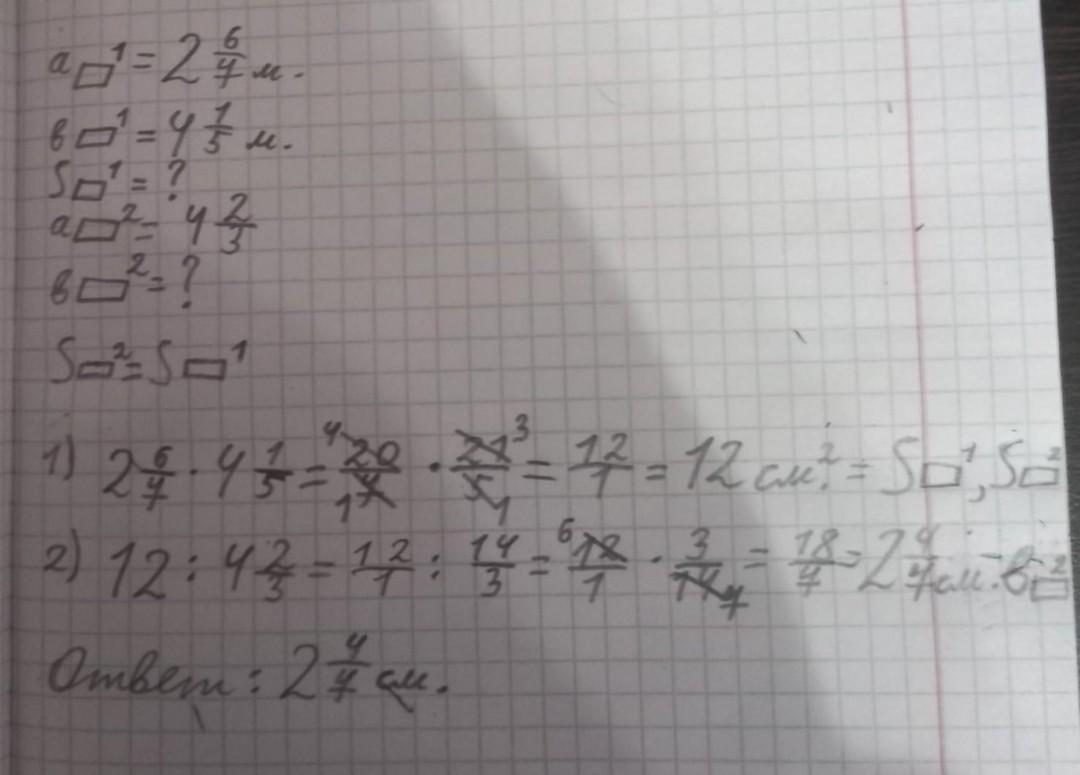 a▭¹ = 2 6/7 м.
в▭¹ = 4 1/5 м.
S▭¹ = ?
a▭² = 4 2/3
в▭² = ?
S▭² = S▭¹
1) 2 6/7 · 4 1/5 = 20/7 · 21/5 = 12/1 = 12 см² = S▭¹, S▭²
2) 12 : 4 2/3 = 12/1 : 14/3 = 12/1 · 3/14 = 18/7 = 2 4/7 см. = в▭²
Ответ : 2 4/7 см.